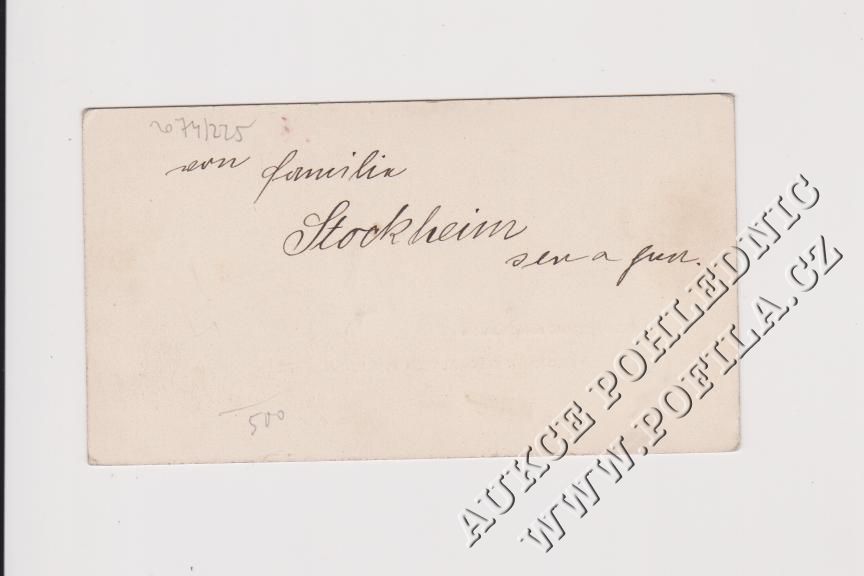 2074/225
von familie
Stockheim
sen a jun.
500
AUKCE POHLEDNIC
WWW.POFILA.CZ